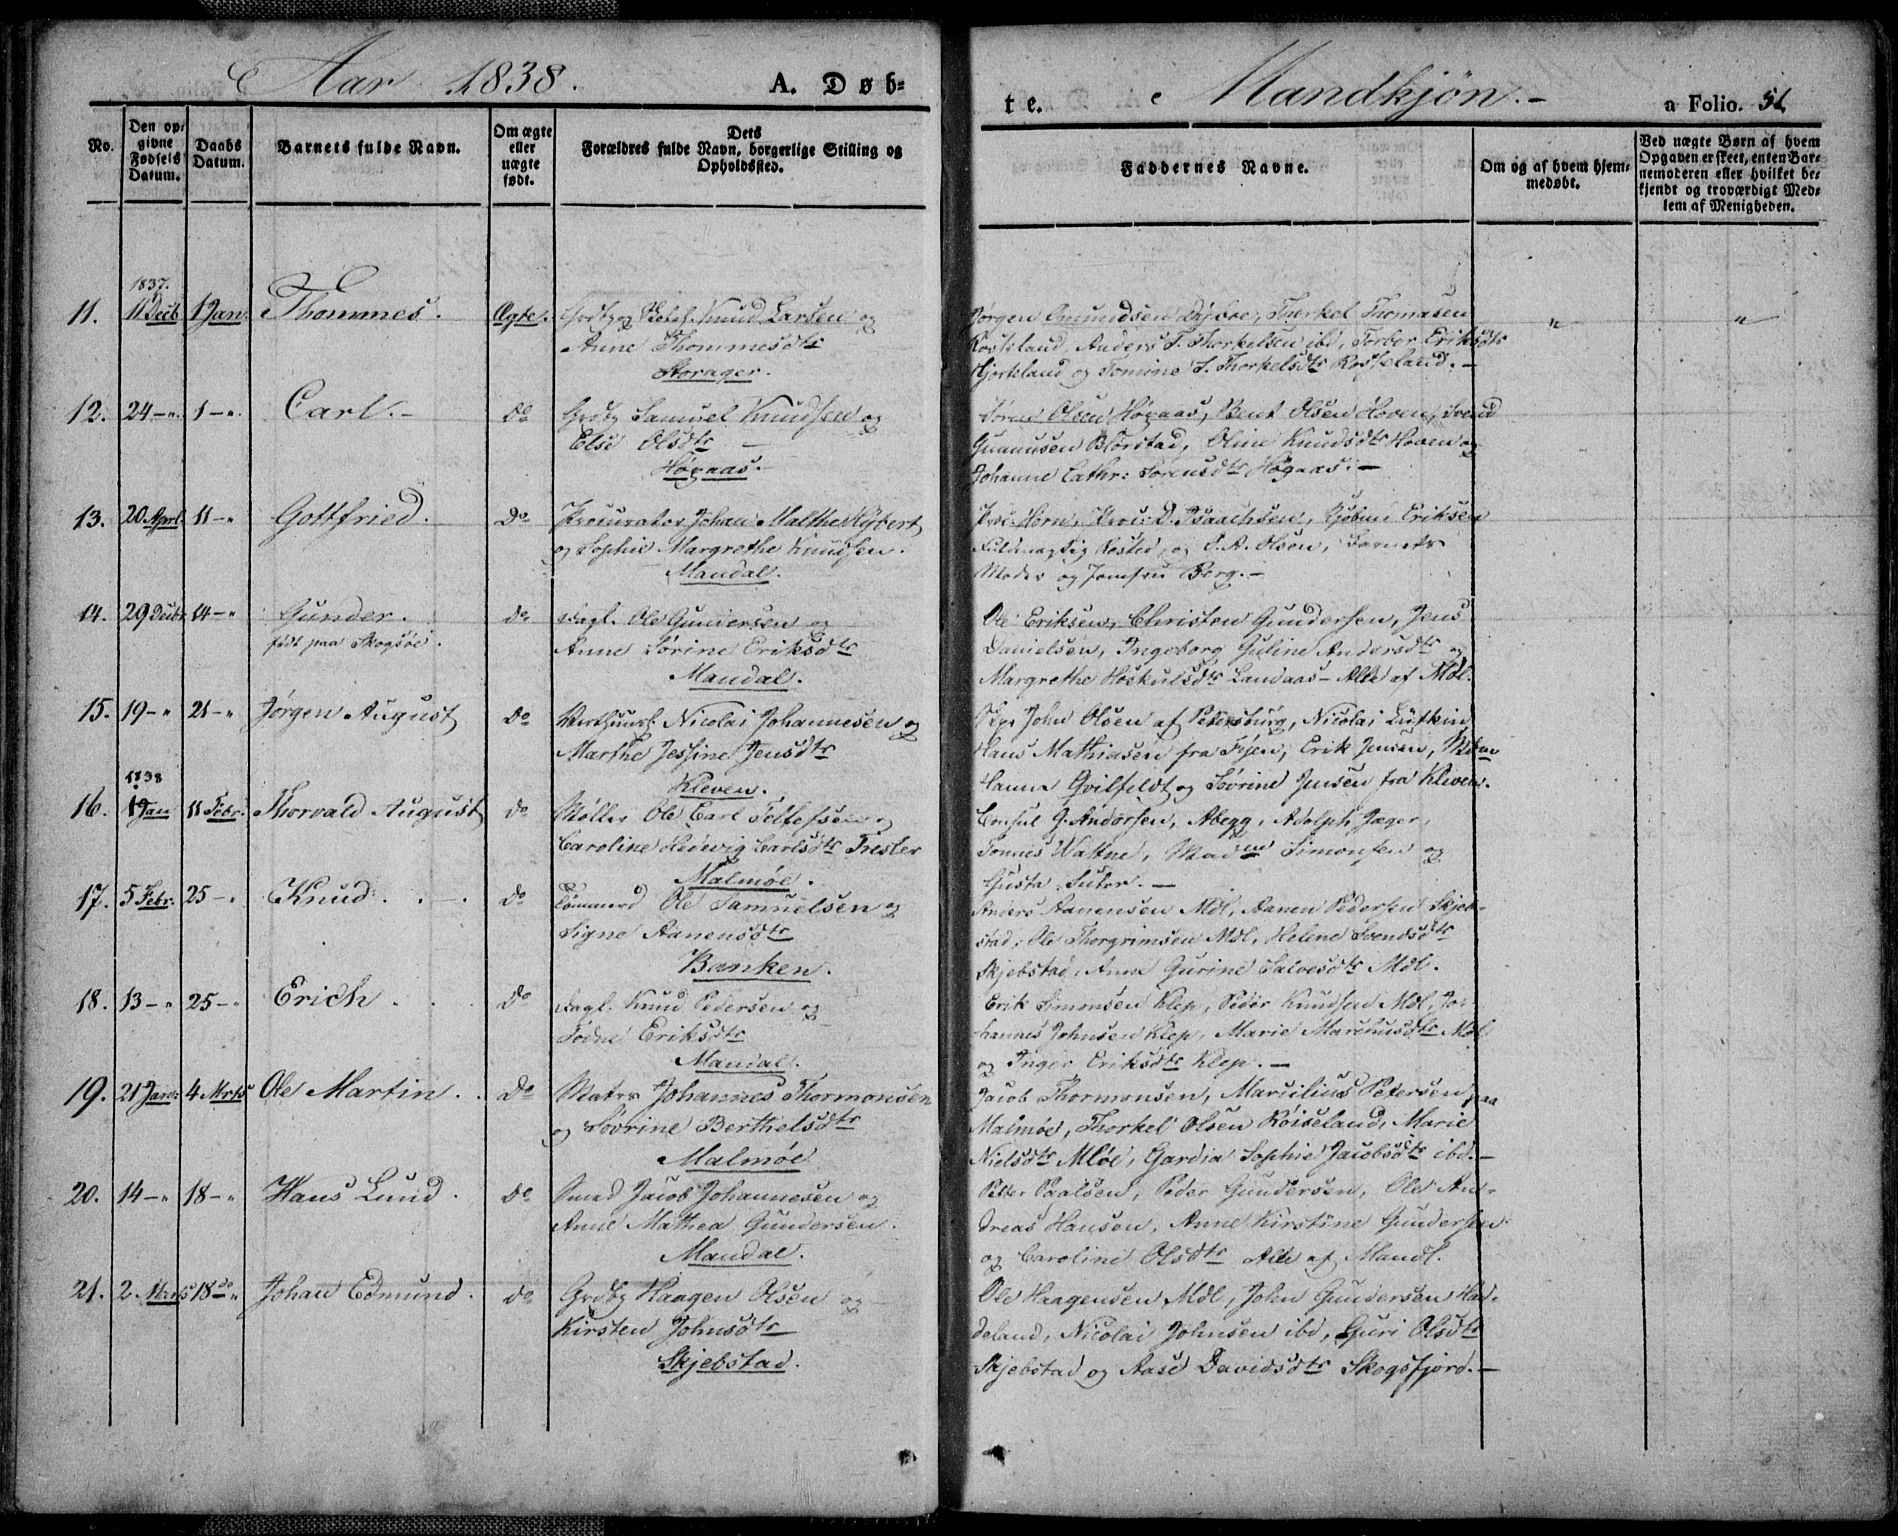 Aar 1838. A. Døb-
te. Mandkjøn.- a Folio. 51
No.
Den op-
givne
Fødsels
Datum.
Daabs
Datum.
Barnets fulde Navn.
Om ægte
eller
uægte
født.
Dets
Forældres fulde Navn, borgerlige Stilling og
Opholdssted.
Faddernes Navne.
Om og af hvem hjem-
medøbt.
Ved uægte Børn af hvem
Opgaven er skeet, enten Bar-
nemoderen eller hvilket be-
kjendt og troværdigt Med-
lem af Menigheden.
1837.
11. 11 Decb 1 Jan. Thommes. Ægte. Knud Larsen og
Anne Thommesdtr
Storager.
Jørgen Omundsen Thorkel Thomasen
Rosseland, Anders T. Thorkelsen ibd, Torbor Eriksdtr
Hjorteland og Tomine T. Thorkelsdtr Rosseland. -
" "
12. 24 - " 1 - " Carl. - do Grdbg Samuel Knudsen og
Else Olsdtr
Høgaas.
Søren Olsen Høgaas, Bent Olsen Hoven, Svend
Gunnusen Blørstad, Oline Knudsdtr Hoven og
Johanne Cathr: Sørensdtr Høgaas. -
13. 20 Aprl. 11 - " Gottfried. Do Procurator Johan Malthe Nybert
og Sophie Margrethe Knudsen.
Mandal.
Proc: Horn, Proc: D. Isaachsen, Kjøbm Eriksen
Fuldmægtig Rosted, og T. A. Olsen, Barnets
Moder og Jomfru Berg. -
14. 29 Decbr 14 - " Gunder. do Dagl. Ole Gundersen og
født paa Skogsøe.
Anne Sørine Eriksdtr
Mandal.
Ole Eriksen, Christen Gundersen, Jens
Danielsen, Ingeborg Guline Andersdtr og
Margrethe Høskulsdtr Landaas - Alle af Mdl.
15. 19 - " 21 - " Jørgen August Do Nicolai Johannesen og
Marthe Jessine Jensdtr
Kleven.
Skpr John Olsen af Petersburg, Nicolai Lütkin
Hans Mathiasen fra Fyen, Erik Jensen, Mdme
Hanna Qvilfeldt og Sørine Jensen fra Kleven.
1838
16. 19 Jan 11 Febr. Thorvald August do Møller Ole Carl Tellefsen og
Caroline Hedevig Carlsdtr Trester
Malmøe.
Consul G. Andorsen, Abegg, Adolph Jæger,
Tonnes Wattne, Madme Simonsen og
Gusta Suter. -
17. 5 Febr. 25 - " Knud. do Tømmerd Ole Samuelsen og
Signe Aanensdtr
Banken.
Anders Aanensen Mdl, Aanen Pedersen Skjeb-
stad, Ole Thorgrimsen Mdl, Helene Svendsdtr
Skjebstad, Anna Gurine Salvesdtr Mdl.
18. 13 - " 25 - " Erich. Do Dagl. Knud Pedersen og
Todne Eriksdtr
Mandal.
Erik Simonsen Klep, Peder Knudsen Mdl, Jo-
hannes Johnsen Klep, Marie Marthusdtr Mdl
og Inger Eriksdtr Klep. -
19. 21 Janr. 4 Mrts Ole Martin. Do Matrs Johannes Thormonsen
og Sørine Berthelsdtr
Malmøe
Jacob Thormonsen, Marcilius Petersen paa
Malmøe, Thorkel Olsen Røiseland, Marie
Nielsdtr Mløe, Gardia Sophie Jacobsdtr ibd. -
20. 14 - " 18 - " Hans Lund. Do Smed Jacob Johannesen og
Anne Mathea Gundersen.
Mandal.
Petter Paalsen, Peder Gundersen, Ole An-
dreas Hansen, Anne Kirstine Gundersen
og Caroline Olsdtr Alle af Mandl.
21. 2 Marts 18 do " Johan Edmund. do Grdbg Haagen Olsen og
Kirsten Johnsdtr
Skjebstad.
Ole Haagensen Mdl, John Gundersen Had-
deland, Nicolai Johnsen ibd, Guri Olsdtr
Skjebstad og Aase Davidsdtr Skogsfjord. -